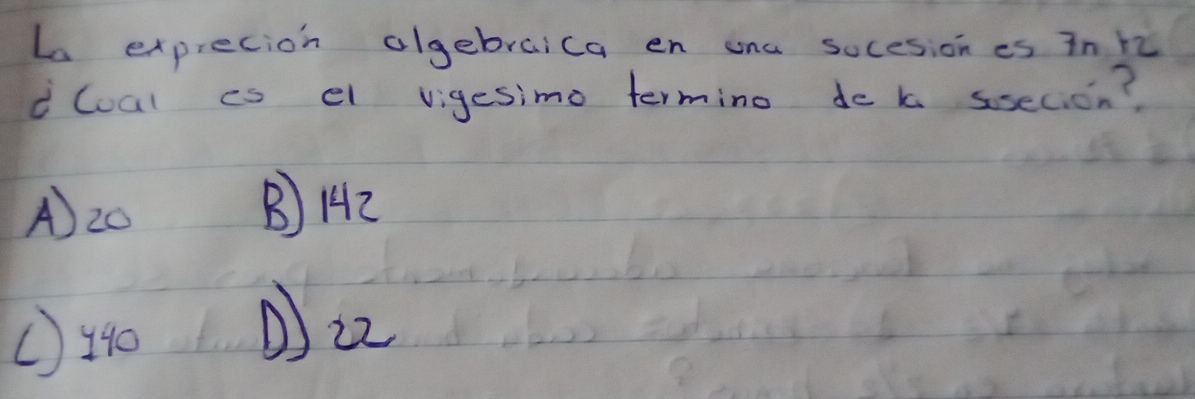 La exprecion algebraica en una sucesion es 7n+2
¿Cual es el vigesimo termino de la suseción?
A) 20 B) 142
C) 140 D) 22